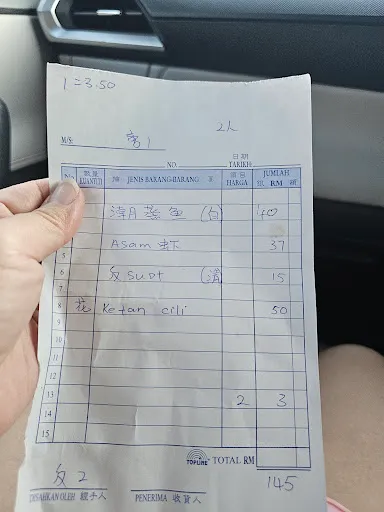 1=3.50
2人
M/S:
日期
NO. TARIKH
No. 數量 KUANTITI 讕 JENIS BARANG-BARANG 單 價包 HARGA JUMLAH 銀 RM
蒸 (白 40
Asam 虾 37
5
6 反 supt (清 15
7
8 花 Ketam cili 50
9
10
11
12
13 2 3
14
15
TOPLINE TOTAL RM
145
反2
DISAHKAN OLEH 經手人 PENERIMA 收貨人